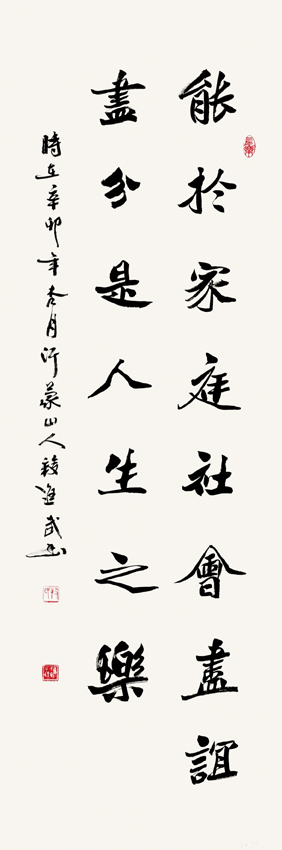 能於家庭社會盡誼
盡分是人生之樂
時在辛卯年春月沂蒙山人

武書